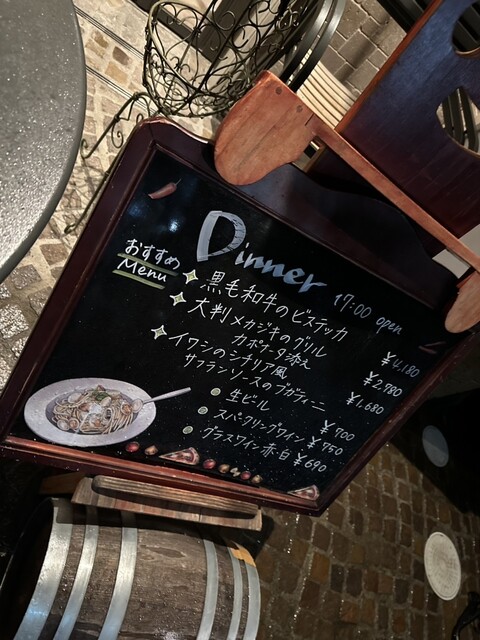 Dinner 17:00 open
おすすめ
Menu
黒毛和牛のビステッカ ¥4,180
大判メカジキのグリル
カポナータ添え ¥2,780
イワシのシチリア風
サフランソースのブガティーニ ¥1,680
生ビール ¥700
スパークリングワイン ¥750
グラスワイン赤・白 ¥690